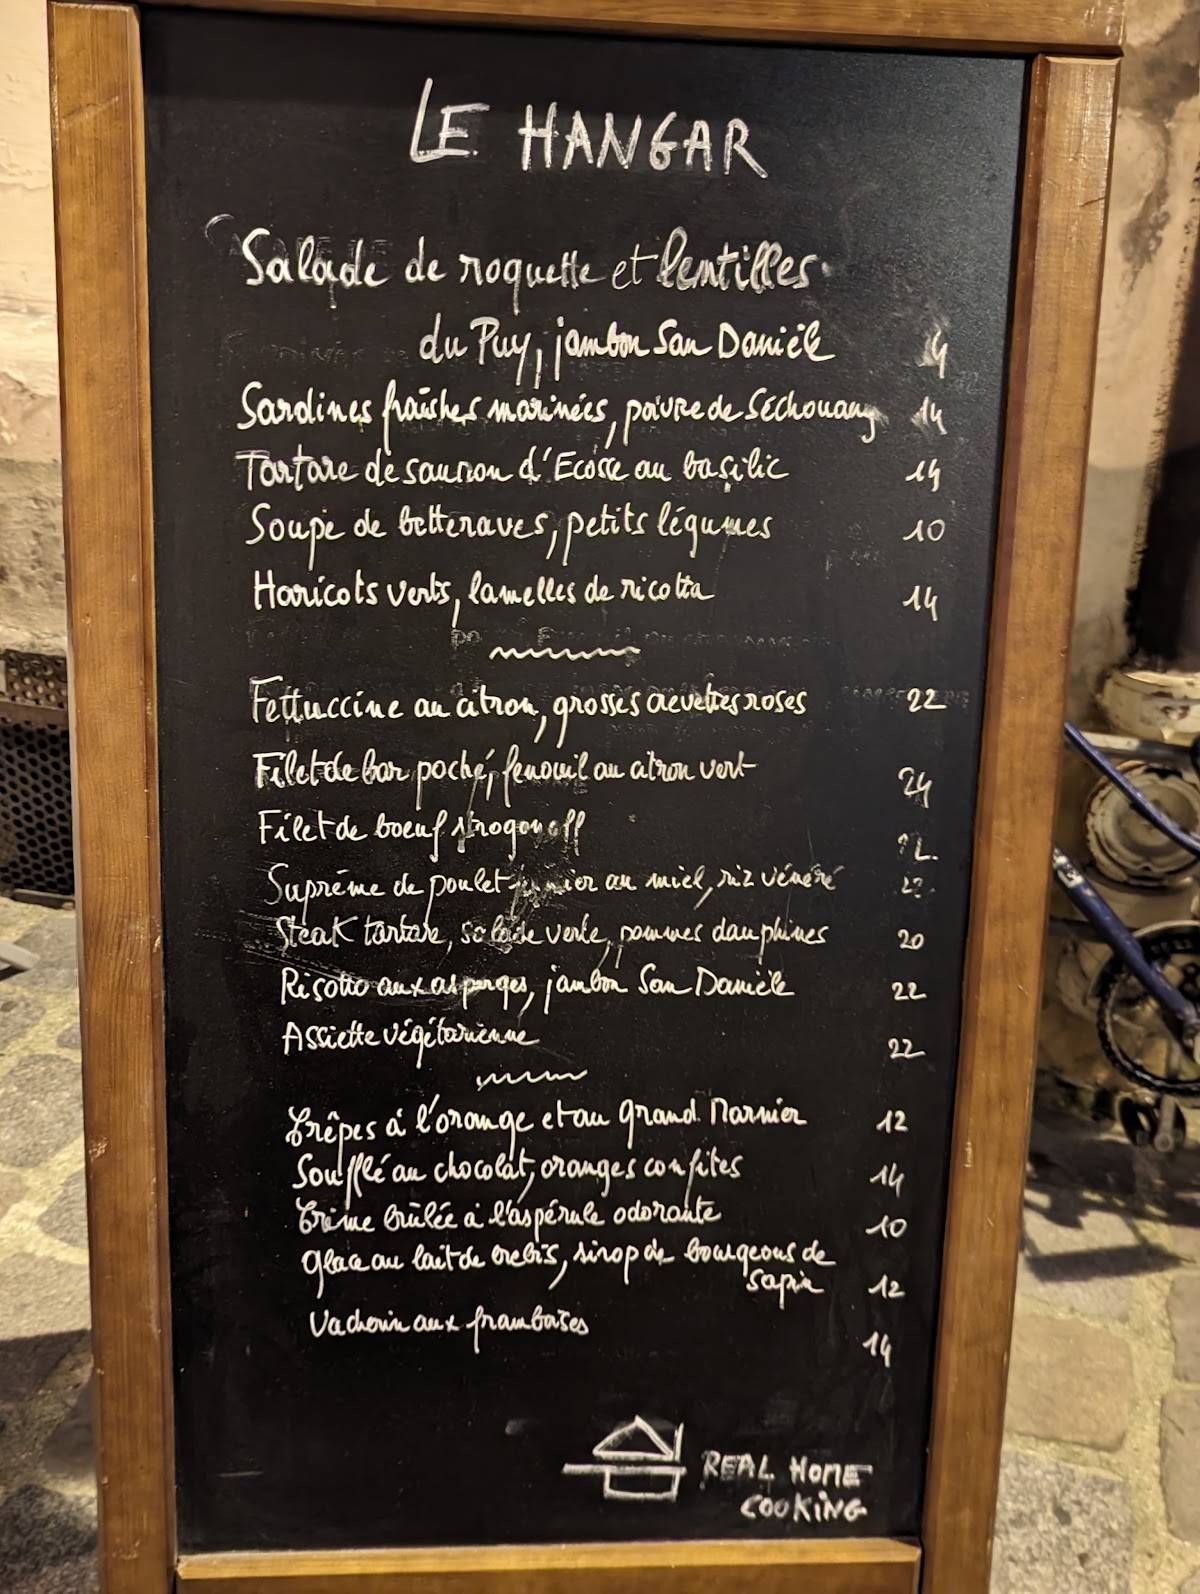 LE HANGAR
Salade de roquette et lentilles
du Puy, jambon San Danièle 14
Sardines fraîches marinées, poivre de Séchouang 14
Tartare de saumon d'Ecosse au basilic 14
Soupe de betteraves, petits légumes 10
Haricots verts, lamelles de ricotta 14
Fettuccine au citron, grosses crevettes roses 22
Filet de bar poché, fenouil au citron vert 24
Filet de boeuf strogonoff
Suprême de poulet fermier au miel, riz vénéré 22
Steak tartare, salade verte, pommes dauphines 20
Risotto aux asperges, jambon San Danièle 22
Assiette végétarienne 22
Crêpes à l'orange et au Grand Marnier 12
Soufflé au chocolat, oranges confites 14
Crème brûlée à l'aspérule odorante 10
Glace au lait de brebis, sirop de bourgeons de
sapin 12
Vacherin aux framboises 14
REAL HOME
COOKING